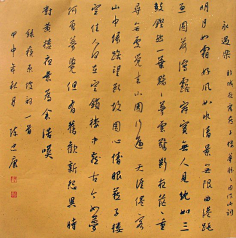 永遇樂 彭城夜宿燕子樓夢盼盼因作此詞
明月如霜好風如水清景無限曲港跳
魚圓荷瀉露寂寞無人見紞如三
鼓鏗然一葉黯黯夢雲驚斷夜茫茫重
尋無處覺來小園行遍天涯倦客
山中歸路望斷故園心眼燕子樓
空佳人何在空鎖樓中燕古今如夢
何曾夢覺但有舊歡新怨異時
對黃樓夜景為余浩嘆
錄蘇東坡詞一首
甲申年秋月